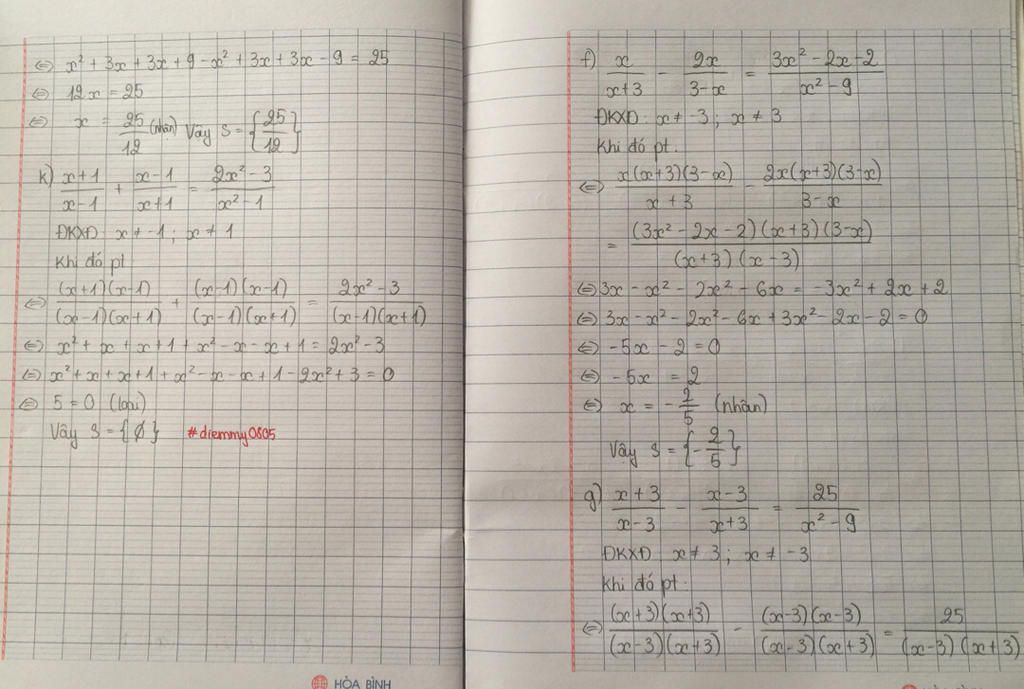 ⇔ x² + 3x + 3x + 9 - x² + 3x + 3x - 9 = 25
⇔ 12x = 25
⇔ x = 25/12 (nhận) Vậy S = {25/12}
k) (x+1)/(x-1) + (x-1)/(x+1) = (2x² - 3)/(x² - 1)
ĐKXĐ: x ≠ -1 ; x ≠ 1
Khi đó pt
⇔ (x+1)(x-1)/(x-1)(x+1) + (x-1)(x-1)/(x-1)(x+1) = (2x² - 3)/(x-1)(x+1)
⇔ x² + x + x + 1 + x² - x - x + 1 = 2x² - 3
⇔ x² + x + x + 1 + x² - x - x + 1 - 2x² + 3 = 0
⇔ 5 = 0 (loại)
Vậy S = {∅} #diemmy0805
HÒA BÌNH
f) x/(x+3) - 2x/(3-x) = (3x² - 2x - 2)/(x² - 9)
ĐKXĐ: x ≠ -3 ; x ≠ 3
Khi đó pt:
⇔ x(x+3)(3-x)/(x+3) - 2x(x+3)(3-x)/(3-x)
= (3x² - 2x - 2)(x+3)(3-x)/(x+3)(x-3)
⇔ 3x - x² - 2x² - 6x = -3x² + 2x + 2
⇔ 3x - x² - 2x² - 6x + 3x² - 2x - 2 = 0
⇔ -5x - 2 = 0
⇔ -5x = 2
⇔ x = -2/5 (nhận)
Vậy S = {-2/5}
g) (x+3)/(x-3) - (x-3)/(x+3) = 25/(x² - 9)
ĐKXĐ: x ≠ 3 ; x ≠ -3
Khi đó pt:
⇔ (x+3)(x+3)/(x-3)(x+3) - (x-3)(x-3)/(x-3)(x+3) = 25/(x-3)(x+3)